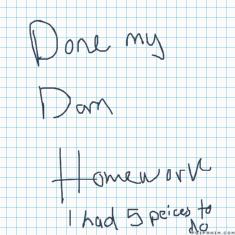 Done my
Dam
Homework
I had 5 peices to
do